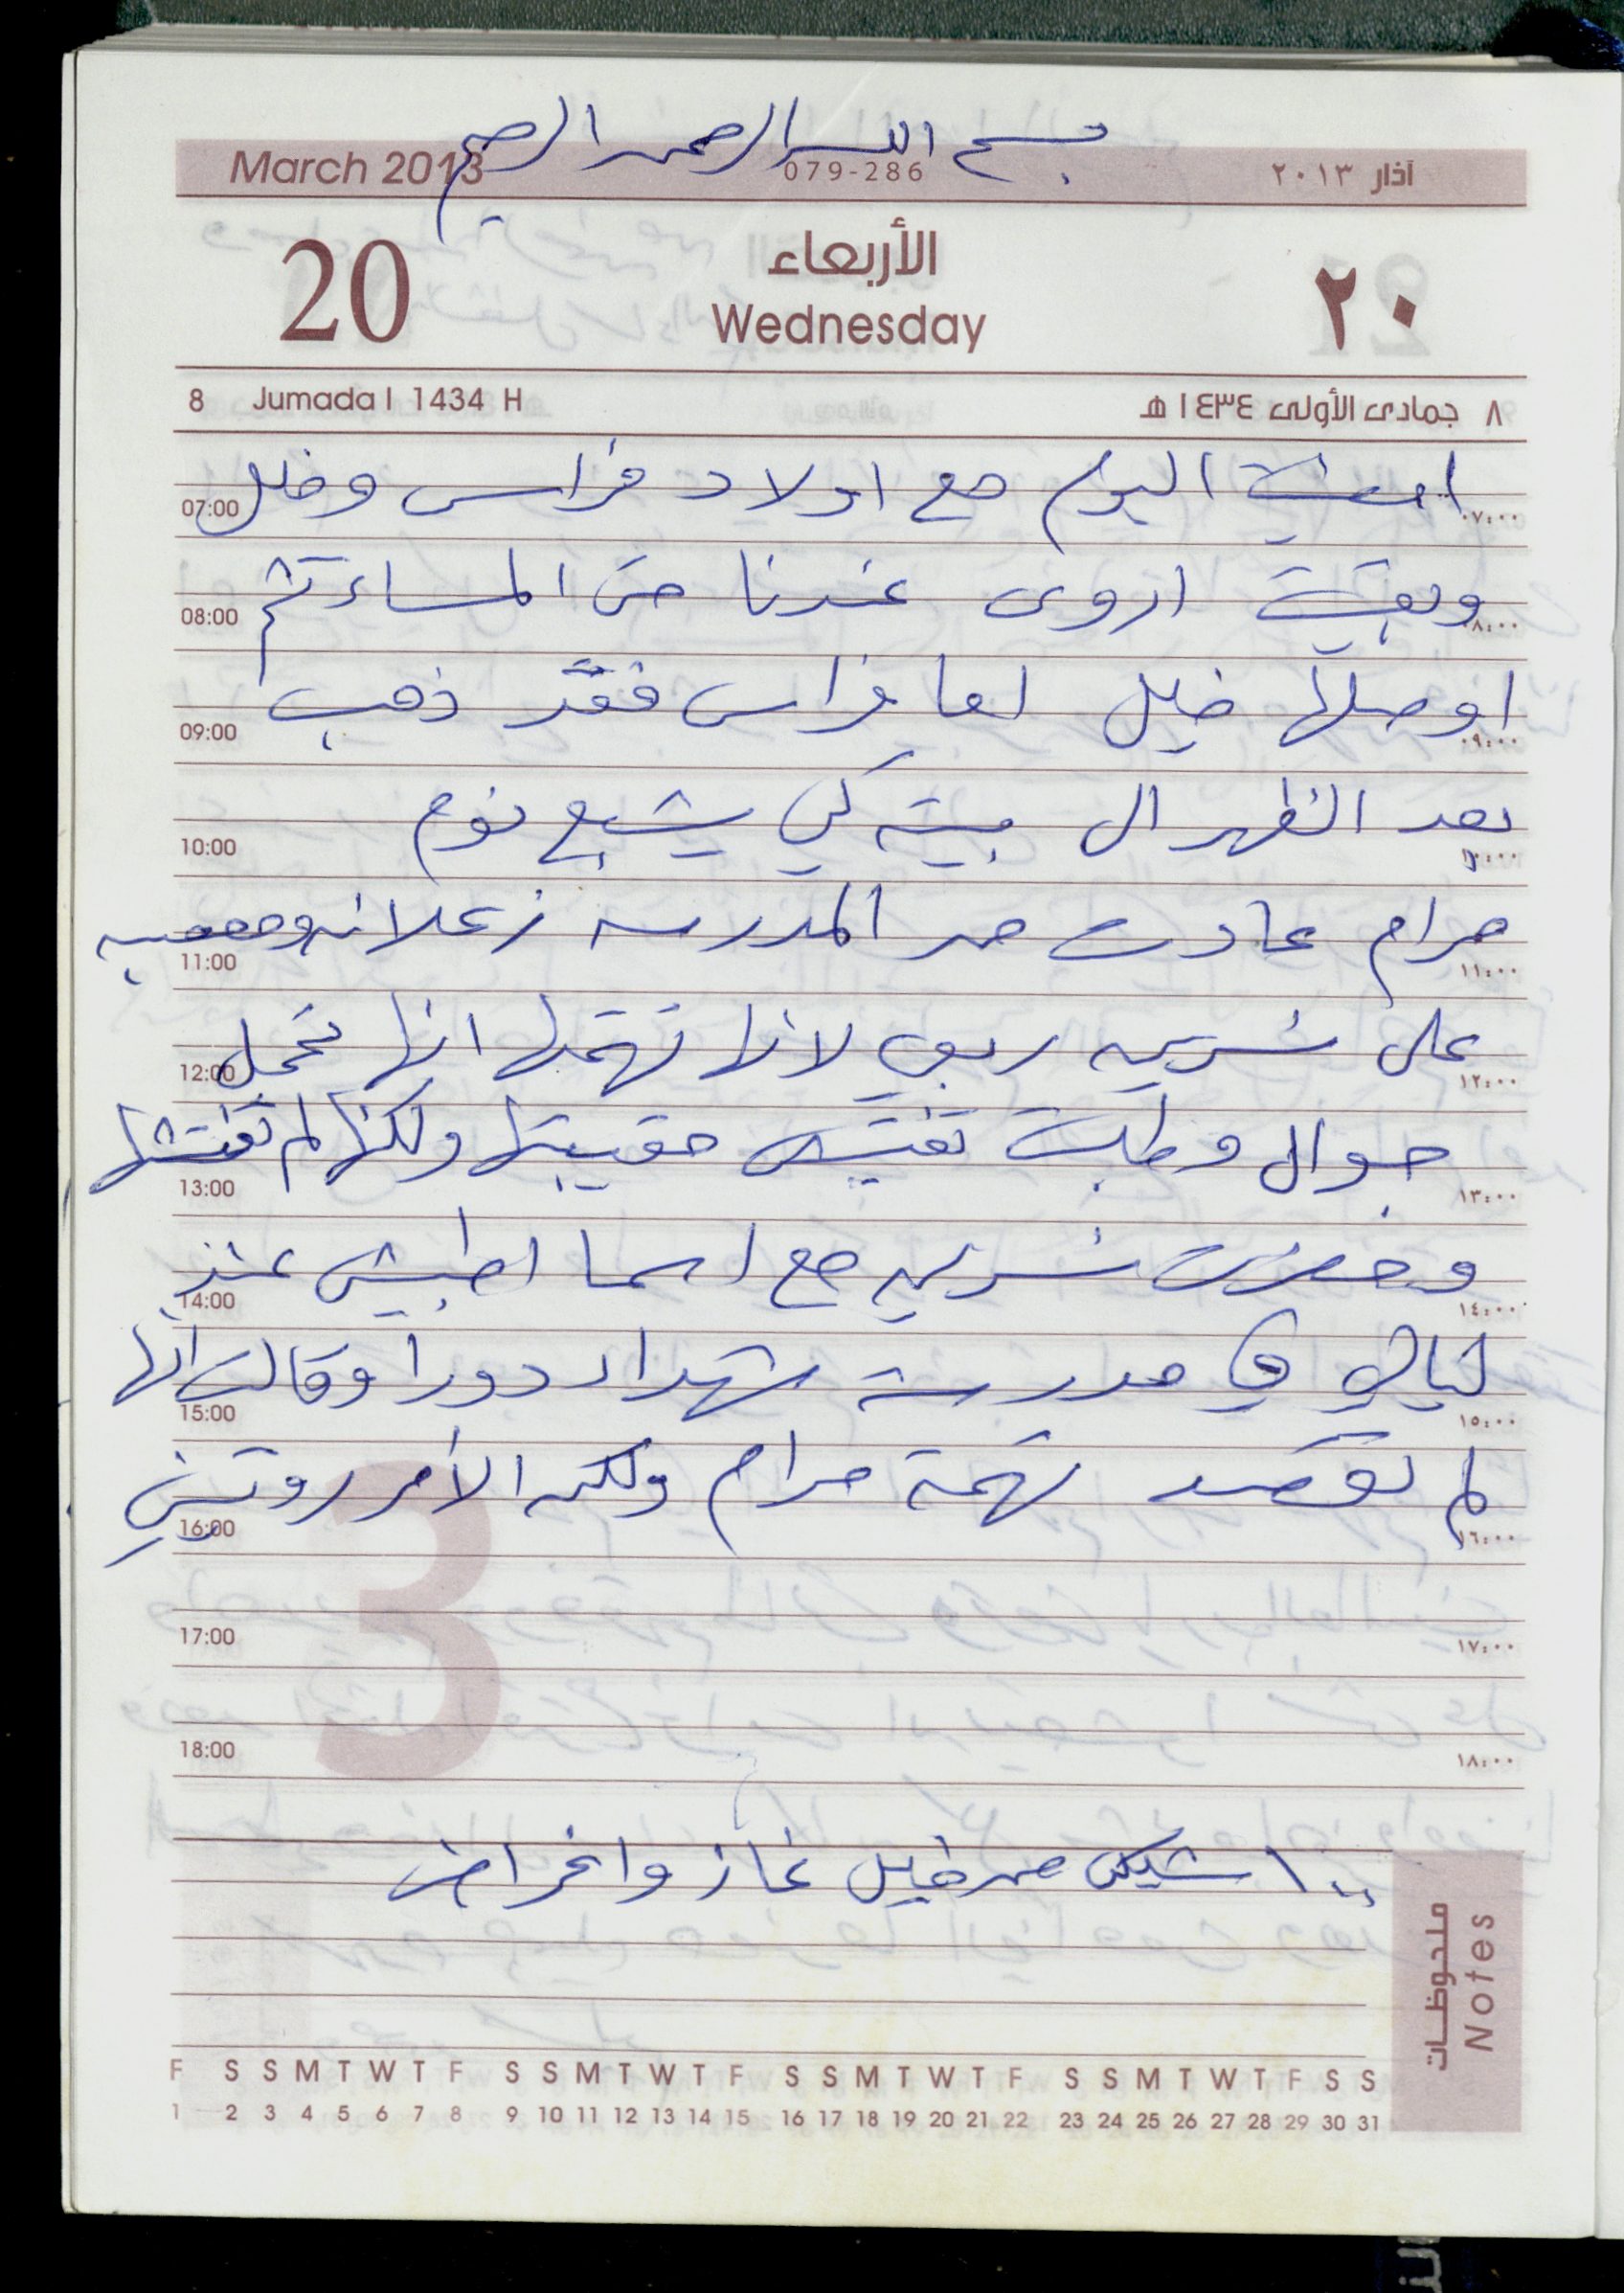 بسم الله الرحمن الرحيم
March 2013 079-286 آذار ٢٠١٣
20 الأربعاء ٢٠
Wednesday
8 Jumada I 1434 H ٨ جمادى الأولى ١٤٣٤ هـ
امضيت اليوم مع اولاد فراس وخليل
07:00 ٠٧:٠٠
وبقيت اروى عندنا حتى المساء ثم
08:00 ٠٨:٠٠
اوصلها خليل اما فراس فقد ذهب
09:00 ٠٩:٠٠
بعد الظهر ال بيته كي يشبع نوم
10:00 ١٠:٠٠
مرام عادت من المدرسه زعلانه ومعصبه
11:00 ١١:٠٠
على نسرين ربعي لانها تتهمها انها تحمل
12:00 ١٢:٠٠
جوال وطلبت تفتيش حقيبتها ولكنها لم تفتشها
13:00 ١٣:٠٠
وحضرت نسرين مع اسما اطبيش عند
14:00 ١٤:٠٠
ليالي في مدرسة شهداء دورا وقالت انها
15:00 ١٥:٠٠
لم تقصد تهمة مرام ولكن الأمر روتيني
16:00 ١٦:٠٠
17:00 ١٧:٠٠
18:00 ١٨:٠٠
١٠٠ شيكل من خليل غاز واغراض
ملحوظات
Notes
F S S M T W T F S S M T W T F S S M T W T F S S M T W T F S S
1 2 3 4 5 6 7 8 9 10 11 12 13 14 15 16 17 18 19 20 21 22 23 24 25 26 27 28 29 30 31
3